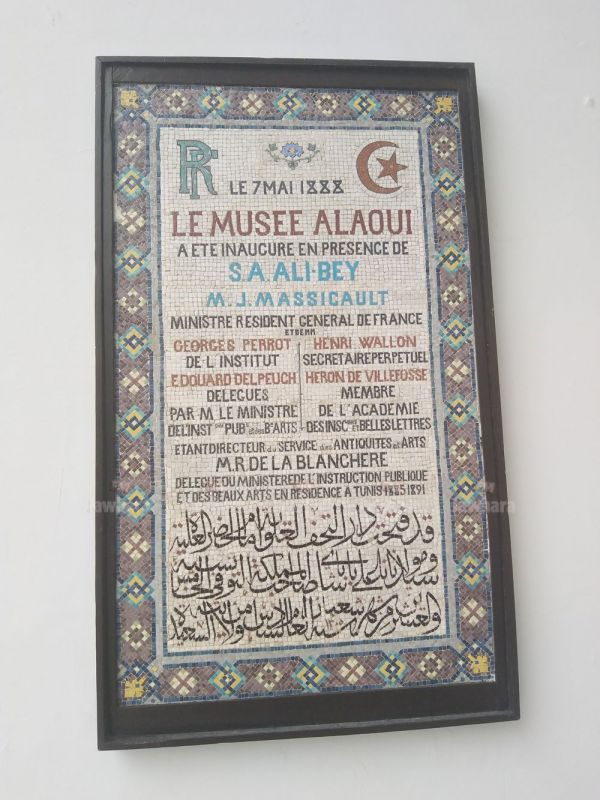 RF
LE 7 MAI 1888
LE MUSEE ALAOUI
A ETE INAUGURE EN PRESENCE DE
S.A. ALI-BEY
M. J. MASSICAULT
MINISTRE RESIDENT GENERAL DE FRANCE
ET DE MM
GEORGES PERROT
DE L'INSTITUT
EDOUARD DELPEUCH
DELEGUES
PAR M LE MINISTRE
DE L'INST PUB ET DES B ARTS
HENRI WALLON
SECRETAIRE PERPETUEL
HERON DE VILLEFOSSE
MEMBRE
DE L'ACADEMIE
DES INSC ET BELLES LETTRES
ETANT DIRECTEUR DU SERVICE DES ANTIQUITES ET ARTS
M.R. DE LA BLANCHERE
DELEGUE DU MINISTERE DE L'INSTRUCTION PUBLIQUE
ET DES BEAUX ARTS EN RESIDENCE A TUNIS 1885 1891
قد فتحت دار التحف العلوية امام الحضرة العلية
علي باي باشا صاحب المملكة التونسية